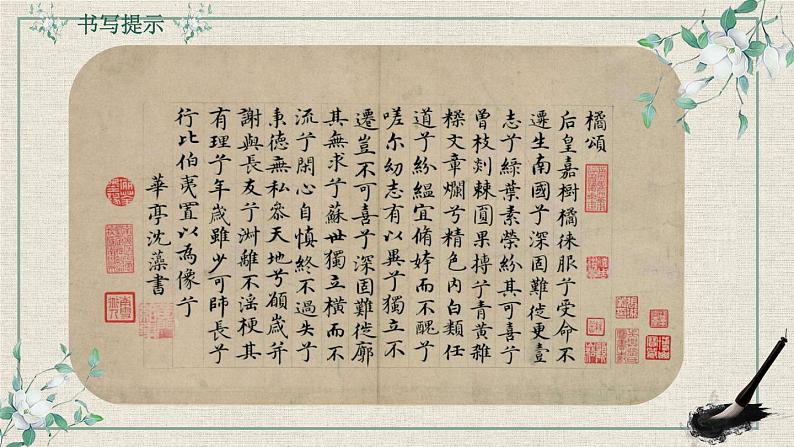 书写提示
橘頌
后皇嘉樹橘徠服兮受命不
遷生南國兮深固難徙更壹
志兮綠葉素榮紛其可喜兮
曾枝剡棘圓果摶兮青黃雜
糅文章爛兮精色內白類任
道兮紛緼宜脩姱而不醜兮
嗟尔幼志有以異兮獨立不
遷豈不可喜兮深固難徙廓
其無求兮蘇世獨立橫而不
流兮閑心自慎終不過失兮
秉德無私叅天地兮願歲并
謝與長友兮淑離不淫梗其
有理兮年歲雖少可師長兮
行比伯夷置以為像兮
華亭沈藻書